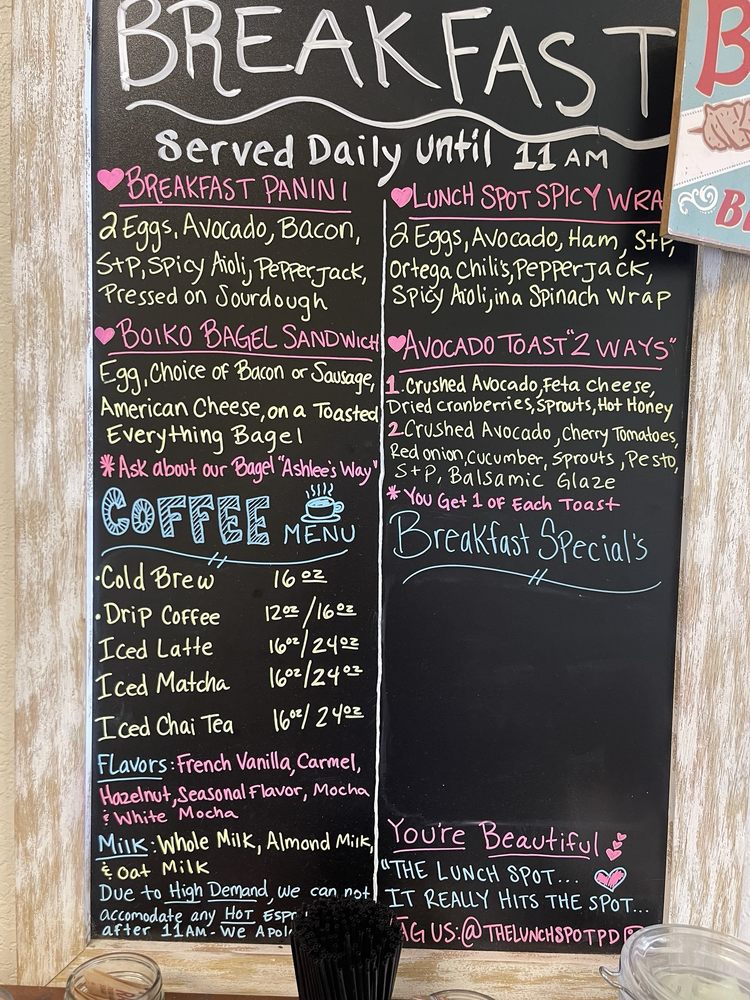 BREAKFAST
Served Daily Until 11 AM
BREAKFAST PANINI
2 Eggs, Avocado, Bacon,
S+P, Spicy Aioli, Pepperjack,
Pressed on Sourdough
BOIKO BAGEL SANDWICH
Egg, Choice of Bacon or Sausage,
American Cheese, on a Toasted
Everything Bagel
*Ask about our Bagel "Ashlee's Way"
COFFEE MENU
•Cold Brew 16 oz
•Drip Coffee 12oz/16oz
Iced Latte 16oz/24oz
Iced Matcha 16oz/24oz
Iced Chai Tea 16oz/24oz
Flavors: French Vanilla, Carmel,
Hazelnut, Seasonal Flavor, Mocha
& White Mocha
Milk: Whole Milk, Almond Milk,
& Oat Milk
Due to High Demand, we can not
accomodate any HOT
after 11AM - We
LUNCH SPOT SPICY
2 Eggs, Avocado, Ham, S+P,
Ortega Chili's, Pepperjack,
Spicy Aioli, in a Spinach Wrap
AVOCADO TOAST "2 WAYS"
1. Crushed Avocado, Feta cheese,
Dried cranberries, Sprouts, Hot Honey
2 Crushed Avocado, Cherry Tomatoes,
Red onion, Cucumber, Sprouts, Pesto,
S+P, Balsamic Glaze
*You Get 1 of Each Toast
Breakfast Special's
You're Beautiful
"THE LUNCH SPOT...
IT REALLY HITS THE SPOT...
TAG US: @THELUNCHSPOTPD